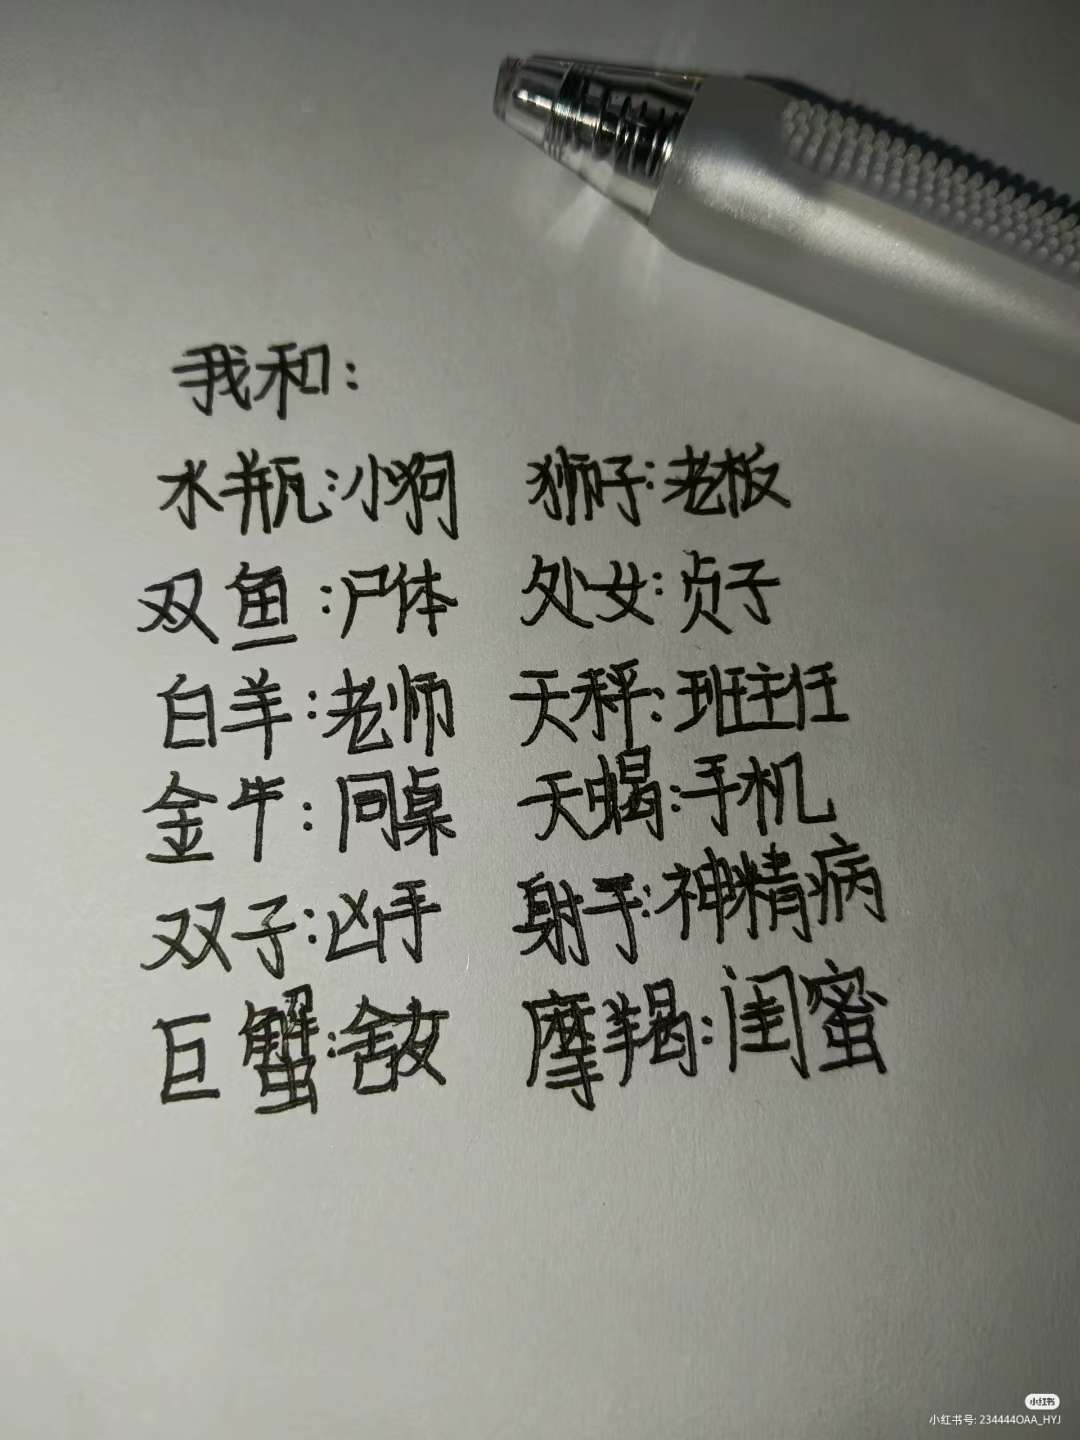 我和:
水瓶:小狗 狮子:老板
双鱼:尸体 处女:贞子
白羊:老师 天秤:班主任
金牛:同桌 天蝎:手机
双子:凶手 射手:神精病
巨蟹:舍友 摩羯:闺蜜
小红书
小红书号: 234444OAA_HYJ